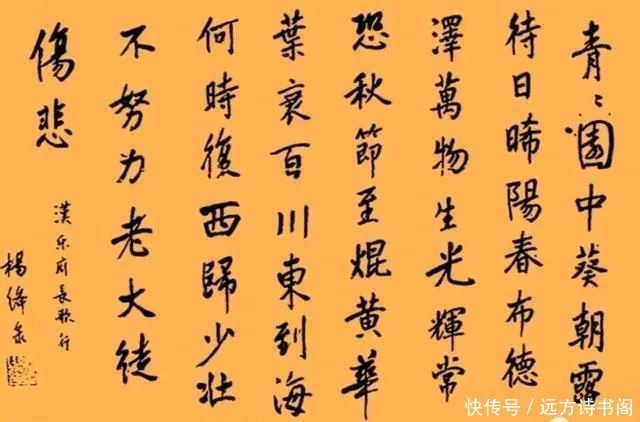 青〻園中葵朝露
待日晞陽春布德
澤萬物生光輝常
恐秋節至焜黃華
葉衰百川東到海
何時復西歸少壯
不努力老大徒
傷悲
漢乐府長歌行
楊絳录
快传号／远方诗书阁